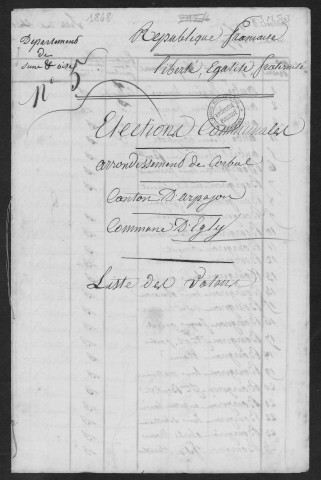 1848
Département
de
Seine & oise
République française
liberté, Egalité fraternité
N° 5
Elections Communales
arrondissement de Corbeil
Canton D'arpajon
Commune D'Egly
Liste des Votans